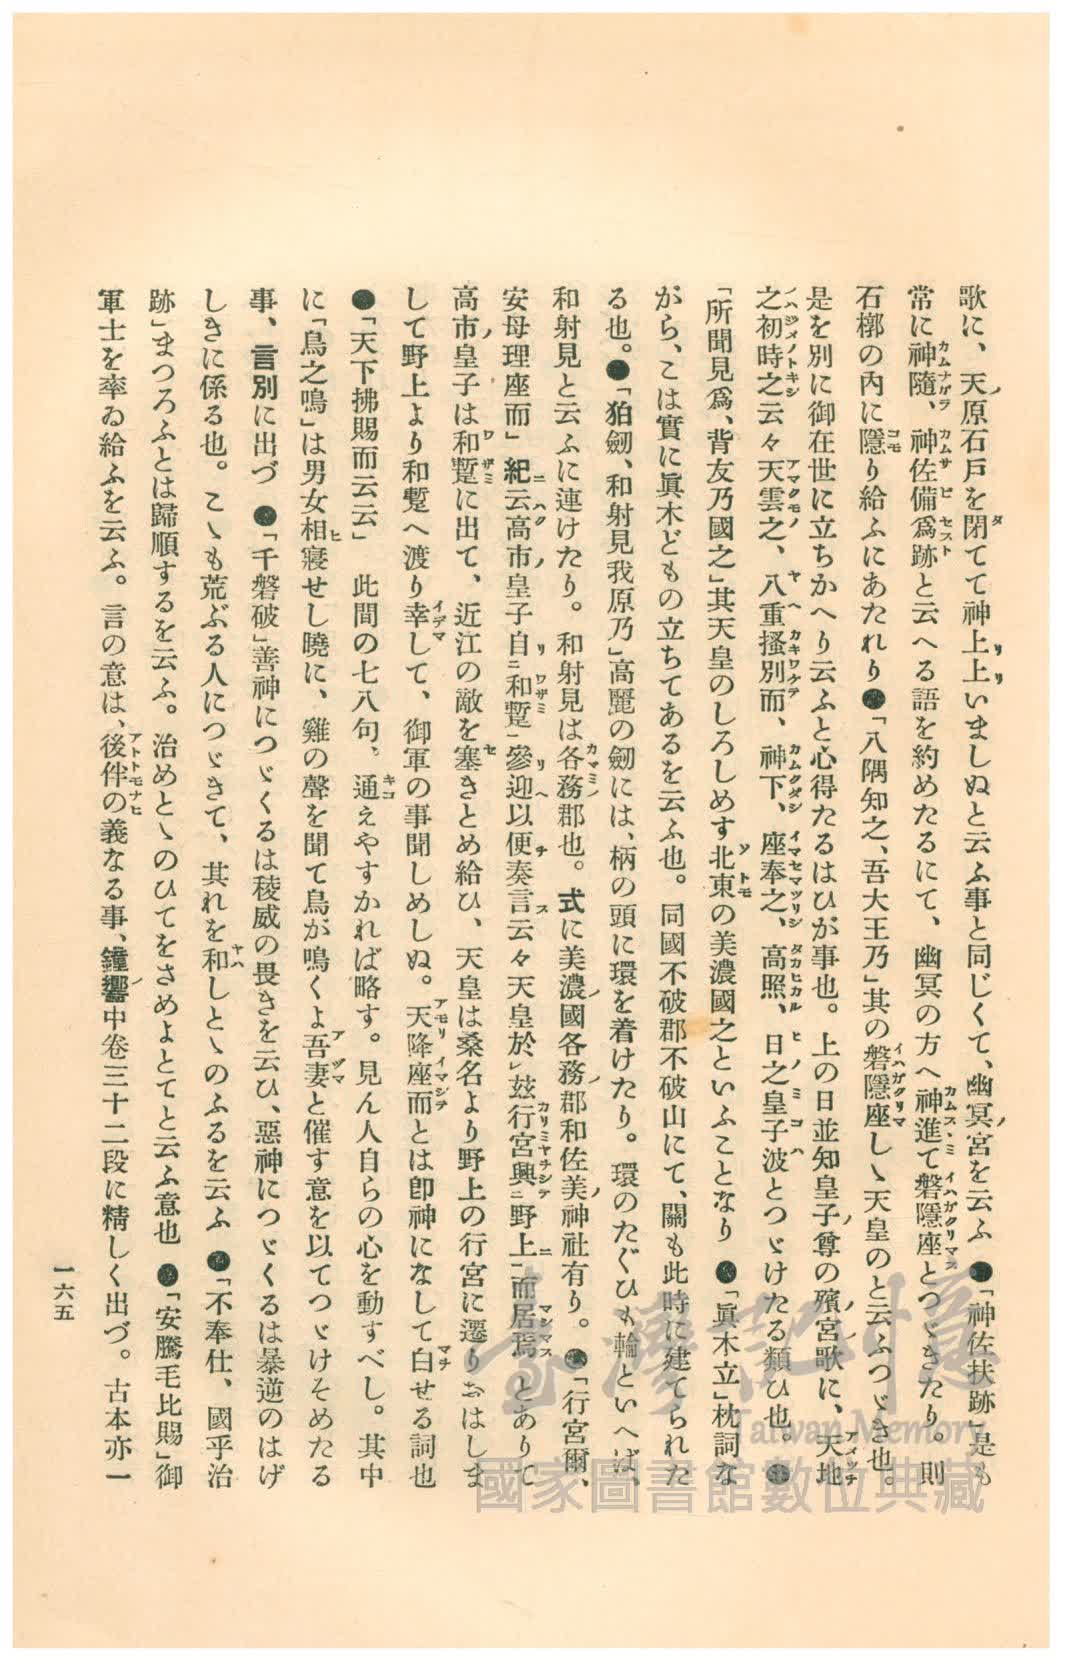 歌に、天原石戸を閉てて神上上いましぬと云ふ事と同じくて、幽冥宮を云ふ ●「神佐扶跡」是も
常に神隨、神佐備爲跡と云へる語を約めたるにて、幽冥の方へ神進て磐隱座とつゞきたり。則
石槨の內に隱り給ふにあたれり●「八隅知之、吾大王乃」其の磐隱座しゝ天皇のと云ふつゞき也。
是を別に御在世に立ちかへり云ふと心得たるはひが事也。上の日並知皇子尊の殯宮歌に、天地
之初時之云々天雲之、八重搔別而、神下、座奉之、高照、日之皇子波とつゞけたる類ひ也。●
「所聞見爲、背友乃國之」其天皇のしろしめす北東の美濃國之といふことなり ●「眞木立」枕詞な
がら、こは實に眞木どもの立ちてあるを云ふ也。同國不破郡不破山にて、關も此時に建てられた
る也。●「狛劒、和射見我原乃」高麗の劒には、柄の頭に環を着けたり。環のたぐひも輪といへば、
和射見と云ふに連けたり。和射見は各務郡也。式に美濃國各務郡和佐美神社有り。●「行宮爾、
安母理座而」紀云高市皇子自ニ和蹔一參迎以便奏言云々天皇於レ玆行宮興ニ野上一而居焉 とありて
高市皇子は和蹔に出て、近江の敵を塞きとめ給ひ、天皇は桑名より野上の行宮に遷りおはしま
して野上より和蹔へ渡り幸して、御軍の事聞しめしぬ。天降座而とは卽神になして白せる詞也
●「天下拂賜而云云」 此間の七八句。通えやすかれば略す。見ん人自らの心を動すべし。其中
に「鳥之鳴」は男女相寢せし曉に、雞の聲を聞て鳥が鳴くよ吾妻と催す意を以てつゞけそめたる
事、言別に出づ ●「千磐破」善神につゞくるは稜威の畏きを云ひ、惡神につゞくるは暴逆のはげ
しきに係る也。こゝも荒ぶる人につゞきて、其れを和しとゝのふるを云ふ ●「不奉仕、國乎治
跡」まつろふとは歸順するを云ふ。治めとゝのひてをさめよとてと云ふ意也 ●「安騰毛比賜」御
軍士を率ゐ給ふを云ふ。言の意は、後伴の義なる事、鐘響中卷三十二段に精しく出づ。古本亦一
一六五
臺灣記憶
Taiwan Memory
國家圖書館數位典藏